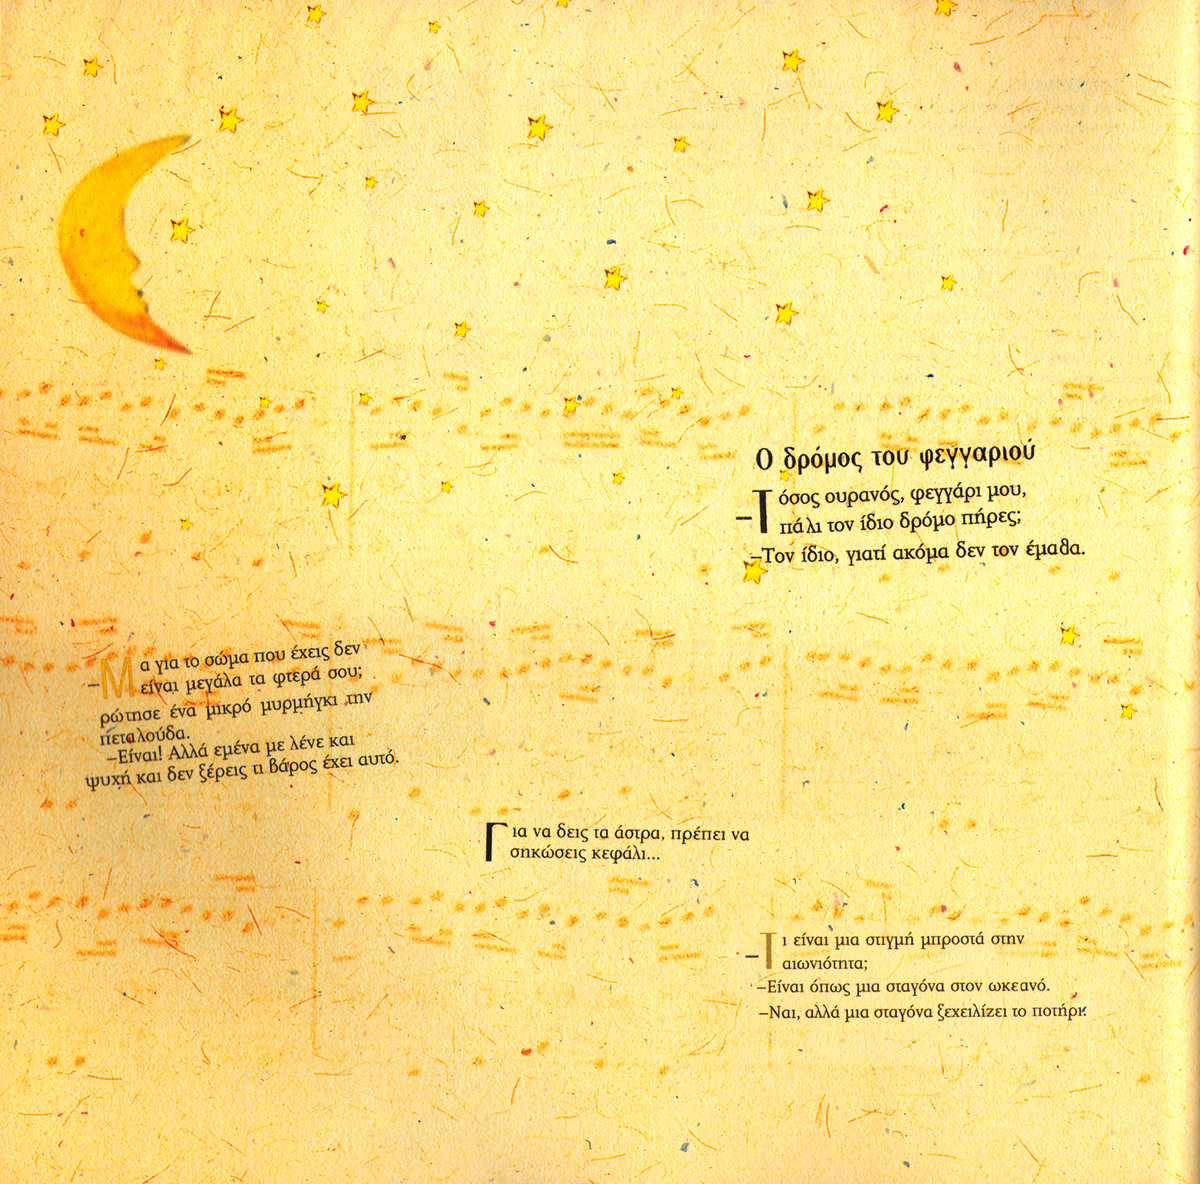 Ο δρόμος του φεγγαριού
–Τόσος ουρανός, φεγγάρι μου,
πάλι τον ίδιο δρόμο πήρες;
–Τον ίδιο, γιατί ακόμα δεν τον έμαθα.
–Μα για το σώμα που έχεις δεν
είναι μεγάλα τα φτερά σου;
ρώτησε ένα μικρό μυρμήγκι την
πεταλούδα.
–Είναι! Αλλά εμένα με λένε και
ψυχή και δεν ξέρεις τι βάρος έχει αυτό.
Για να δεις τα άστρα, πρέπει να
σηκώσεις κεφάλι...
–Τι είναι μια στιγμή μπροστά στην
αιωνιότητα;
–Είναι όπως μια σταγόνα στον ωκεανό.
–Ναι, αλλά μια σταγόνα ξεχειλίζει το ποτήρι.